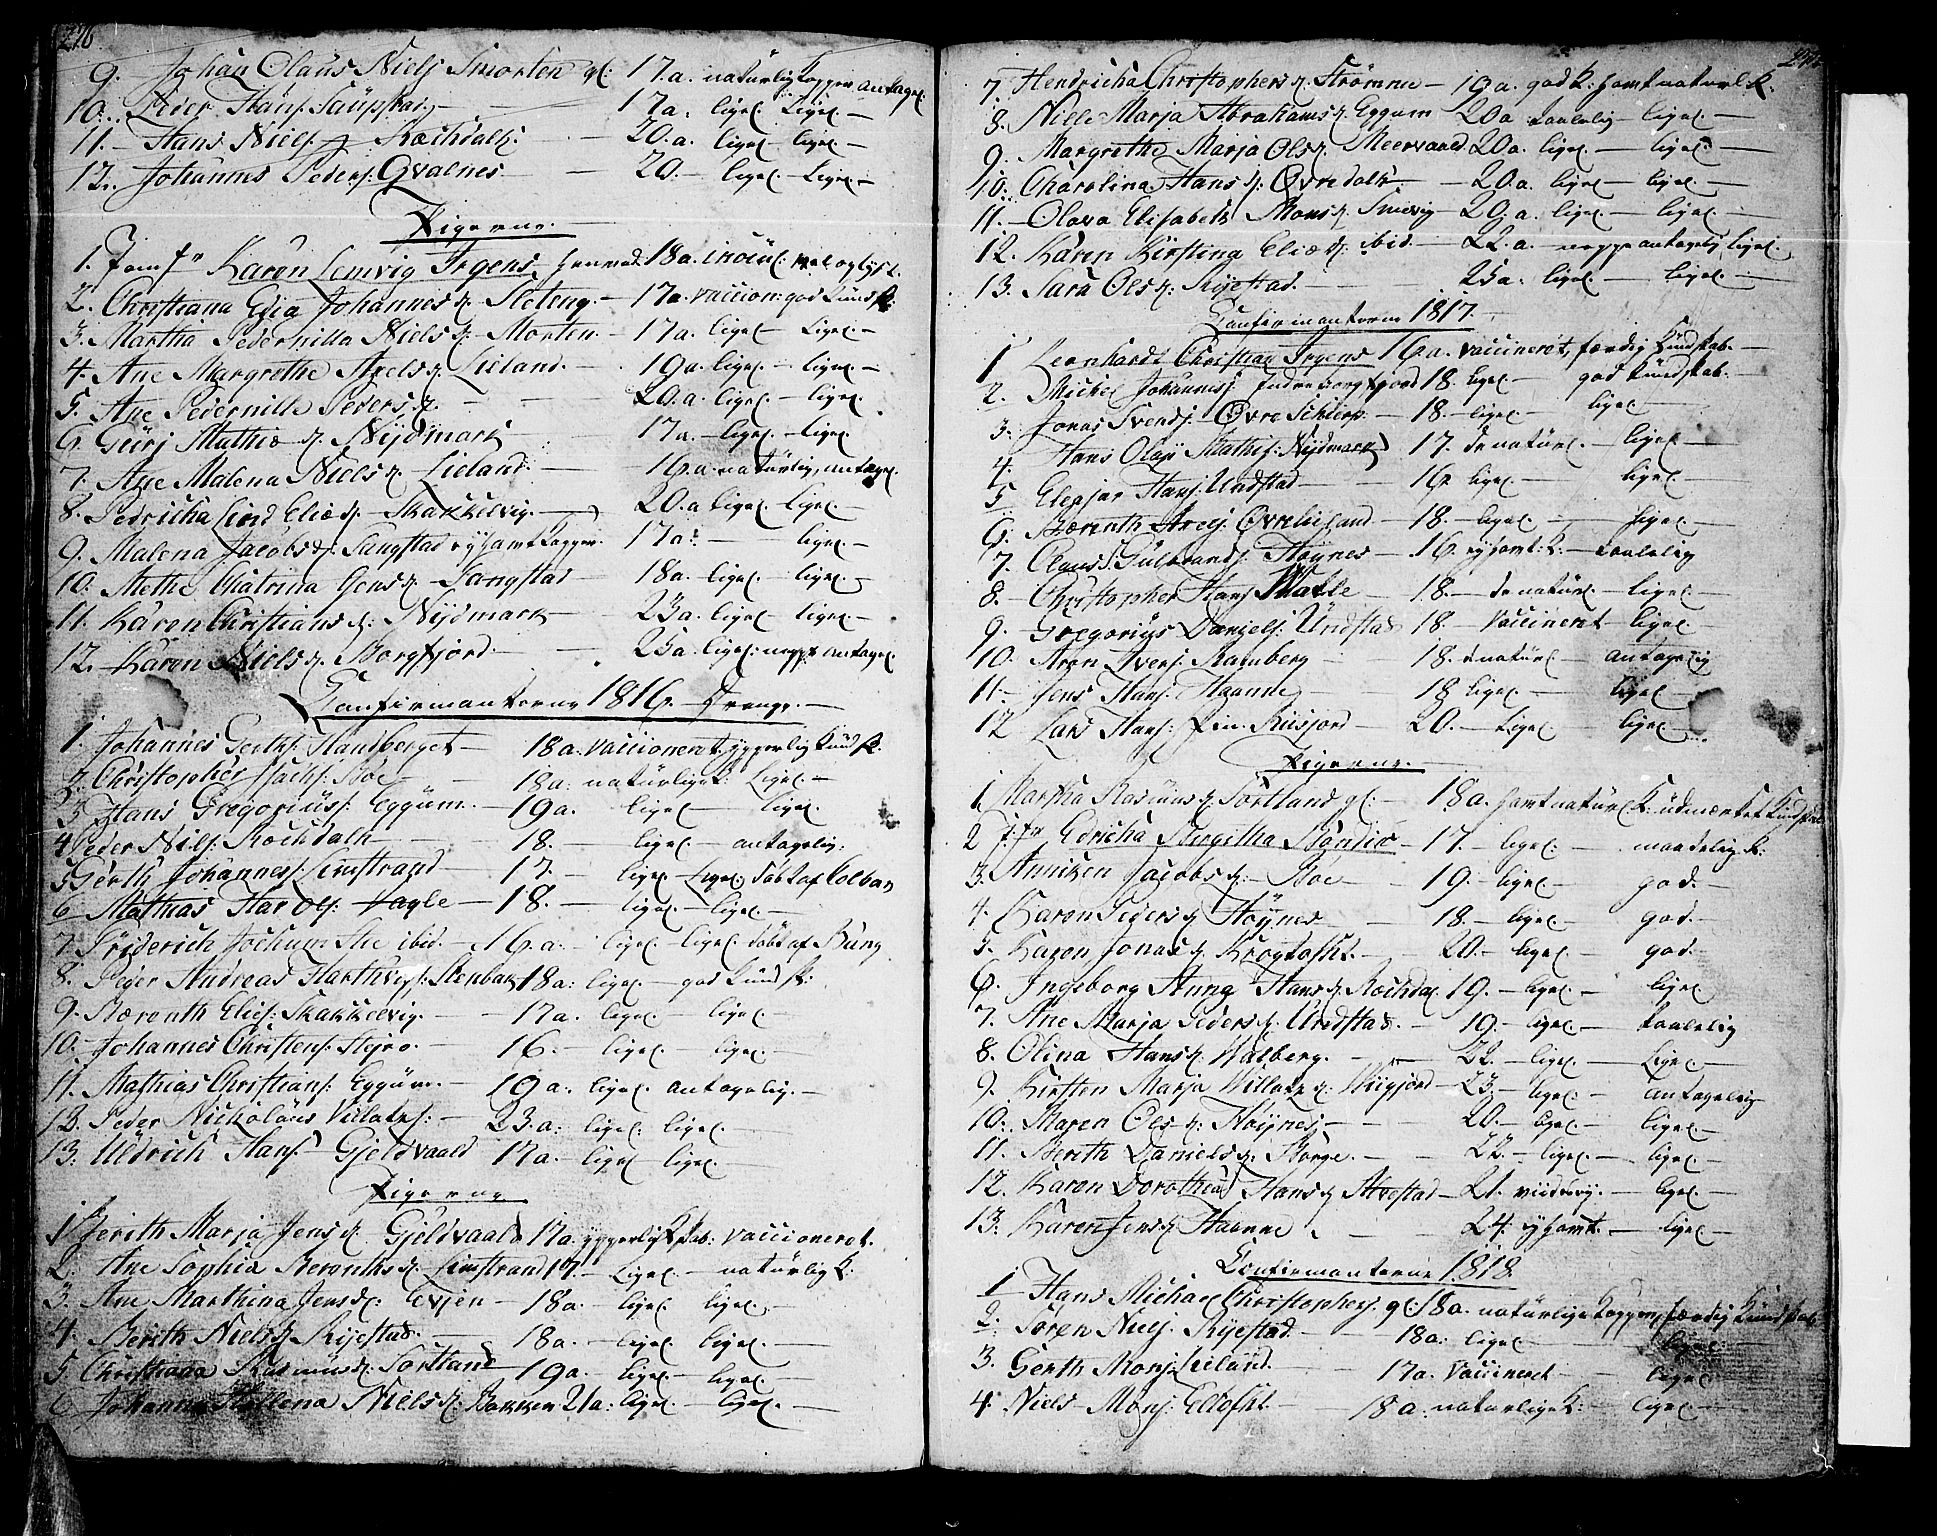 276
9. Johan Olaus Niels. Smorten gl: 17.a. naturlig Kopper antagel:
10. Peder Hans. Saupskar 17a. ligel. Ligel.
11. Hans Niels. Rochdalh. 20.a. ligel. ligel.
12. Johannes Peders. Qvalnes 20. ligel. Ligel.
Pigerne
1. Jomfr Karen Lemvig Irgens 18a. inocul. vel oplyst.
2. Christiana Johannes d. Sleteng. 17a. vaccion: god Kundsk:
3. Martha Pedernilla Niels d. Morten 17a. ligel. Ligel.
4. Ane Margrethe Axels d. Lieland. 19a. ligel. ligel.
5. Ane Pedernille Peders d. 20.a. ligel. ligel.
6. Guri Mathiæ d. Nijdmark 17a. ligel. ligel.
7. Ane Malena Niels d. Lieland. 16.a naturlig, antagel.
8. Pedricha Lind Eliæ d. Skakkelvig. 20.a ligel. Ligel.
9. Malena Jacobs d. Sangstad eyhamt Kopper. 17a: ligel.
10. Methe Chatrina Jens d. Sangstad 18a. ligel. ligel.
11. Karen Christians d: Nijdmark 23a. ligel. ligel.
12. Karen Niels d. Borgfjord. 25a. ligel: neppe antagel.
Confirmanterne 1816. Drenge.
1. Johannes Gerths. Handberget 18a. vaccioneret, ypperlig Kundsk:
2. Christopher Boe 18a: naturlige K: Ligel.
3 Hans Gregorius: Eggum. 19a. ligel. ligel.
4 Peder Nils. Rochdalh 18. ligel. antagelig:
5 Gerth Johannes: Limstrand 17. ligel. Ligel: døbt af Kolban
6 Mathias Har Ols: Hagle 18. ligel. ligel.
7. Friderich Jochum ibid. 16.a. ligel. ligel. døbt af Bang
8. Peder Andreas Harthvigs: Stenbak 18a: ligel. god Kundsk:
9. Berenth Elies: Skakkelvig. 17a. ligel. ligel.
10. Johannes Christens: Styro. 16. ligel. ligel.
11. Mathias Christians: Eggum. 19a. ligel. antagelig.
12. Peder Nickolaus Villats: 23.a: ligel: ligel.
13. Uldrich Hans. Gjeldvaald 17a. ligel ligel.
Pigerne
1 Berith Marja Jens d. Gjeldvaald 17a. ypperlig Kskab: vaccioneret.
2. Ane Sophia Berenths d. Limstrand 17. Ligel. naturlig K:
3. Ane Marthina Jens d: Evjen 18a. ligel. ligel.
4. Berith Niels d. Rijestad. 18a. ligel. ligel.
5. Christiana Rasmus d. Sortland 19a. ligel. ligel.
6 Johanna Hellena Niels d. Bakken 21a: ligel. ligel.
7. Hendricha Christophers d. Strømme 19a. god K: hamt naturl K.
8. Nille Marja Abrahams d. Eggum 20a taalelig ligel.
9. Margrethe Marja Ols d. Meervaald 20a. ligel. ligel.
10. Charolina Hans d. Øvredalh. 20.a. ligel ligel.
11. Olava Elisabeth Mons d. Smevig 20. a. ligel. ligel.
12. Karen Kirstina Eliæ d. ibid. 22.a. neppe antagelig ligel.
13. Sara Ols d. Rijestad. 25a. ligel. ligel.
Confirmanterne 1817.
1 Leonhardt Christian Irgens 16.a. vaccineret, færdig Kundskab.
2. Michel Johannes. Indre Borgfjord 18. ligel. god Kundskab.
3. Jonas Svends. Øvre Schierp. 18. ligel. ligel.
4. Hans Olaj Mathis: Nijdmark 17. de natur. ligel.
5 Eleajar Hans. Undstad 16. ligel. ligel.
6. Bærenth Areс. Øvrelieland 18. ligel. ligel.
7. Claus Gulbrands. Høynes 16. eyhamt: K: taalelig
8. Christopher Hans Walle 18. de natur. ligel.
9. Gregorius Daniels: Undstad 18. Vaccineret ligel.
10. Aron Ivers. Ramberg 18. de natur. antagelig
11. Jens Hans. Haanne 18 ligel. ligel.
12 Lars Hans. Fin. Riisjord 20. Ligel. ligel.
Pigerne.
1 Martha Rasmus d. Sortland gl: 18a. hamt naturl. K: udmærket Kundskab
2 Jfr Edricha Bergitha Bondix 17. ligel. maadelig K:
3. Anniken Jacobs d. Boe 19. ligel. god.
4. Karen Peders d. Høynes 18. ligel. god.
5. Karen Jonas d. Krogtofht. 20. ligel. god.
6. Ingeborg Anna Hans d. Rochdal. 19. ligel. ligel
7. Ane Marja Peders d. Undstad. 19. ligel. taalelig
8. Olina Hans d. Halberg. 22. ligel. Ligel.
9. Kirsten Marja Willats d. Wiigjord 23. ligel: antagelig
10. Maren Ols d. Høynes 20. ligel. ligel.
11. Berith Daniels d. Borge. 22. ligel. ligel.
12. Karen Dorothea Hans d. Alvestad 21. ligel.
13. Karen Jens d. Haanne 24. eyhamt. ligel.
Confirmanterne 1818.
1 Hans Michael Christophers. gl: 18a. naturlige Kopper, færdig Kundskab
2. Søren Niels. Rijestad. 18a: ligel. ligel.
3. Gerth Mons. Lieland. 17a. Vaccineret ligel.
4. Niels Mons. Eltofht. 18a: naturlige K: ligel.